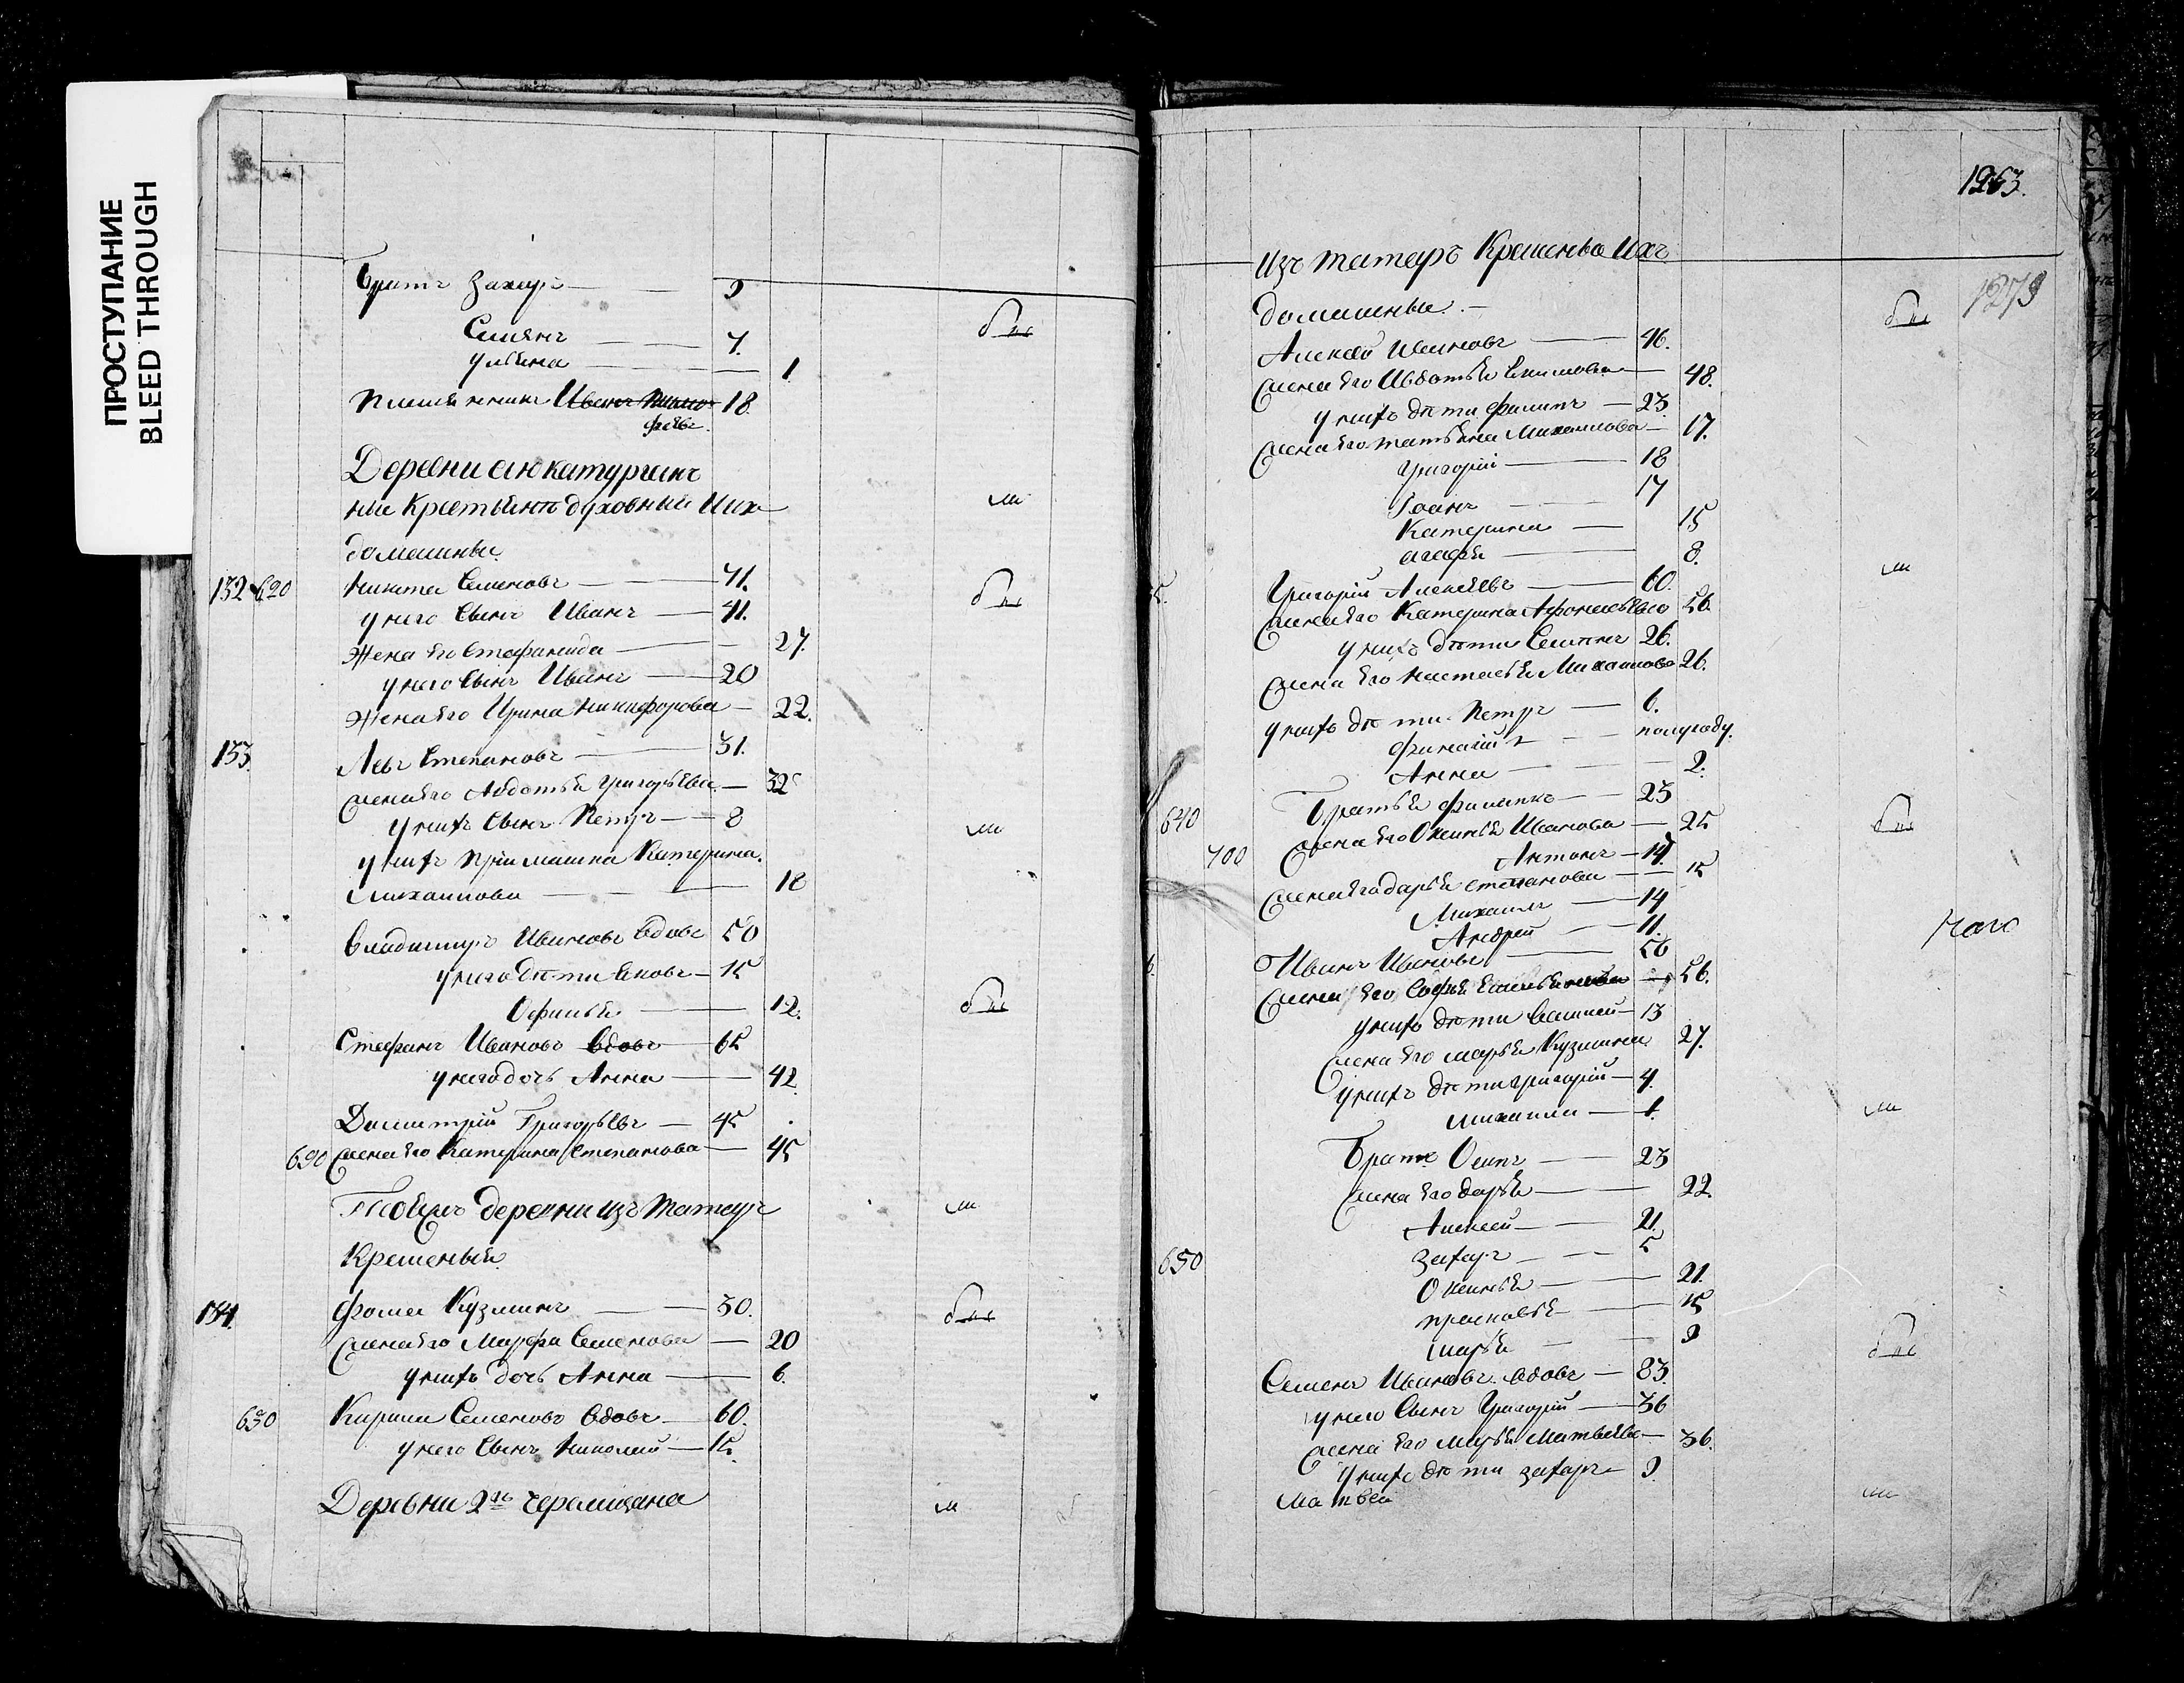 ПРОСТУПАНИЕ
BLEED THROUGH
братъ Захаръ — 9
Семенъ — 7.
Ульяна — 1
племянникъ Иванъ 18
Деревни
крестьянъ духовныи ихъ
домашные
132 620 Никита Семеновъ — 71.
у него сынъ Иванъ — 41.
Жена его Стефанида — 27.
у него сынъ Иванъ — 20
Жена его Ирина Никифорова — 22.
133. Левъ Степановъ — 31.
Жена его Авдотья Григорьева — 32
у нихъ сынъ Петръ — 8
у нихъ приимашка Катерина
Михаилова — 18
Владимиръ Ивановъ вдовъ 50
у него дѣти Яковъ — 15
Офимья — 12.
Стефанъ Ивановъ вдовъ 65
у него дочь Анна — 42
Димитрій Григорьевъ — 45
690 Жена его Катерина Степанова — 45
Тоежъ деревни изъ татаръ
крещеныя
134. Фома Кузминъ — 30.
Жена его Марфа Семенова — 20
у нихъ дочь Анна — 6.
630 Кирила Семеновъ вдовъ — 60.
у него сынъ Николай — 15.
Деревни 2й Черемшана
1263.
1279
изъ татаръ крещеные ихъ
домашные —
Алексѣй Ивановъ — 46.
Жена его Авдотья — 48.
у нихъ дѣти Филипъ — 23.
Жена его Татьяна Михаилова — 17.
Григорій — 18
Іоанъ — 17
Катерина — 15
Агафья — 8.
Григорій Алексѣевъ — 60.
Жена его Катерина Афонасьева 56.
у нихъ дѣти Семенъ 26.
Жена его Настасья Михаилова 26.
у нихъ дѣти Петръ — 6.
полугоду.
Анна — 2.
640 Братья Филипъ — 23
Жена его Оксинья Иванова — 25
700 Антонъ — 17
Жена его Дарья Степанова — 15
Михаилъ — 14
Андрей — 11.
Иванъ Ивановъ — 56
Жена его Софья — 56.
у нихъ дѣти Василей — 13
Жена его Марья Кузмина 27.
у нихъ дѣти Григорій — 4.
Михаила — 1.
Братъ Осипъ — 23
Жена его Дарья — 22.
Алексей — 21.
650 Захаръ — 5
Оксинья — 21.
Прасковья — 15
Марья — 9
Семенъ Ивановъ вдовъ — 83.
у него сынъ Григорій — 36
Жена его Марья Матвѣева — 36.
у нихъ дѣти Захаръ — 9.
Матвей